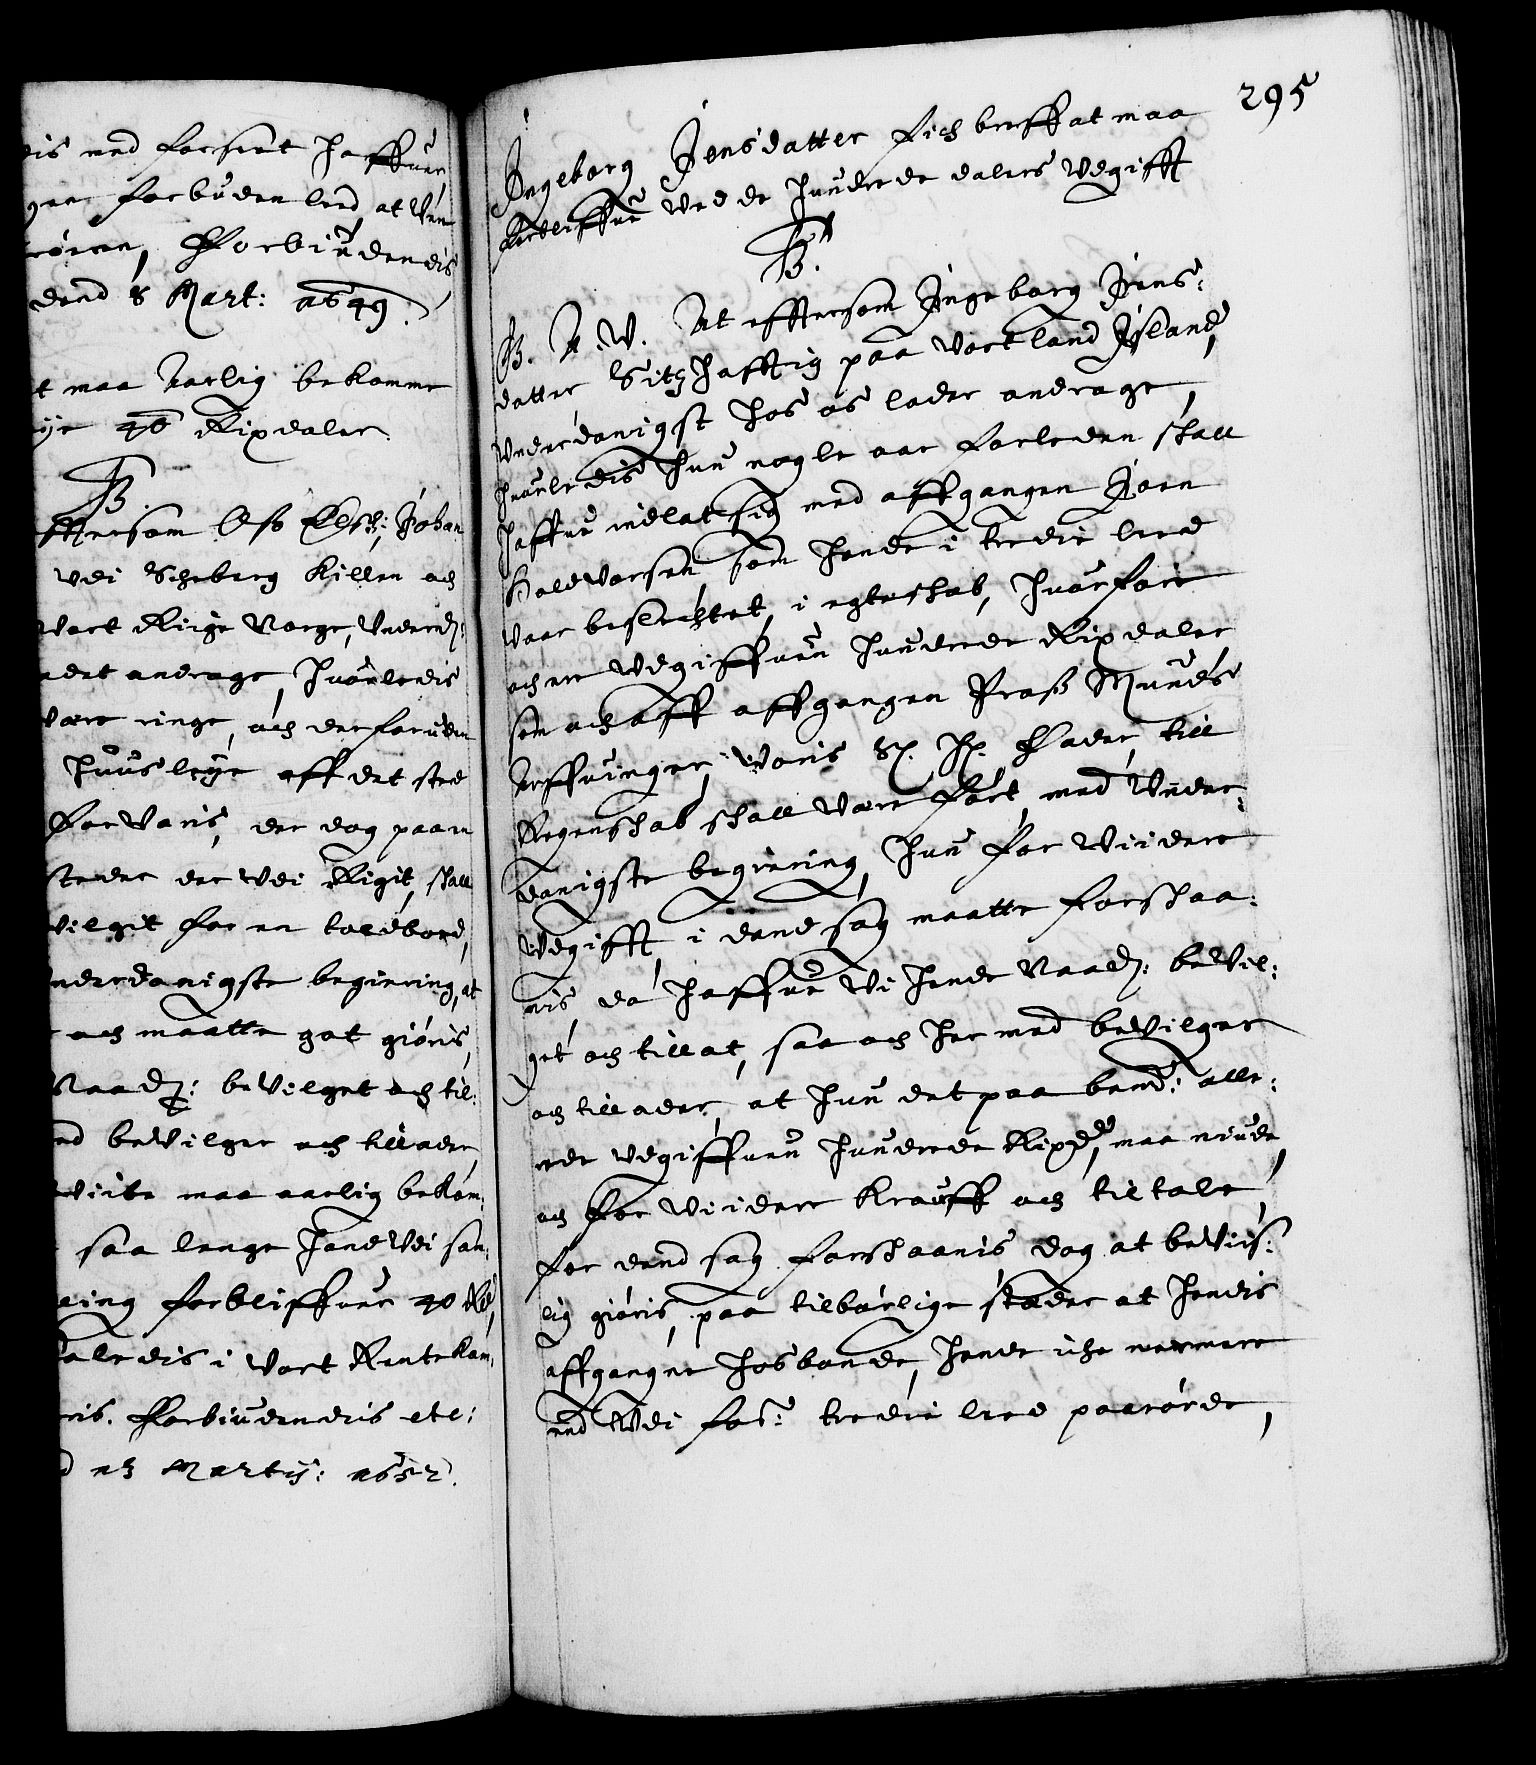 eis med forsent haffuer
gen forbuden leed, at Ven
røren, Forbiudendis
dend 8 Mart: 1649.
t maa Aarlig bekomme
ije 40 Rixdaler.
B.
ttersom Oß Elsk: Johan
vdi Scheberg Killen och
Vort Rige Norge, Underd:
adet andrage, huorledis
være ringe, och der foruden
huusleye aff det sted
forVaris, der dog paa en
steder der vdi Rigit, skall
vilget for en toldbod,
nderdanigste begiering, at
och maatte got giøris,
Naad: beVilget och til:
ed beVilger och tillader,
Viite maa aarlig bekom:
saa lenge hand vdi saa:
ling forbliffuer 40 Rdr
tales i Vort Rentekam:
ris. Forbiudendis etc:
d 13 Martij: 1652.
295
Ingeborg Jensdatter fich breff at maa
forbliffue Ved de hundrede dalers Vdgifft
B.
G. A. V. At effttersom Ingeborg Jens:
datter Sitzhafftig paa Vort land Island,
Underdanigst hos os lader andrage,
huorledis hun nogle aar forleden skall
haffue indlat sig med affgangen Joen
Haldvorsen som hende i tredie leed
vaar beslechtet, i egteskab, huorfore
och er vdgiffuen hundrede Rixdaler
som och aff affgangen Praß Munds
Arffuinger, Voris S. H. Fader, till
Regenskab skall være ført, med Under:
danigste begiering, hun for Viidere
Vdgifft, i dend sag maatte forskaa:
nis, da haffue Vi hende Naad: beVil:
get och tillat, saa och her med beVilger
och tillader, at hun det paa bemd: alle:
rede vdgiffuen hundrede Rixdr, maa niude,
och for Viidere Kraff och tiltale,
for dend sag forskaanis, dog at beviis:
lig giøris, paa tilbørlige stæder at hendis
affgangne hosbonde, hende iche nermere
end Vdi forn: tredie leed paarørde,